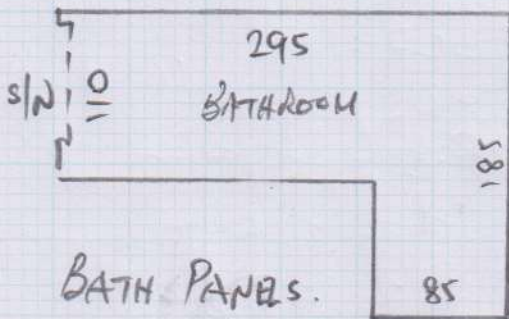 295
S/N
BATHROOM
185
BATH PANELS.
85